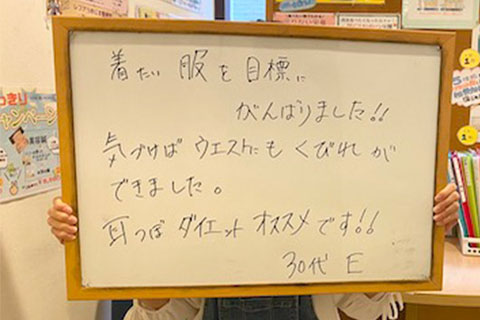 着たい 服を目標に
がんばりました!!
気づけば ウエストにも くびれが
できました。
耳つぼ ダイエット オススメです!!
30代 E